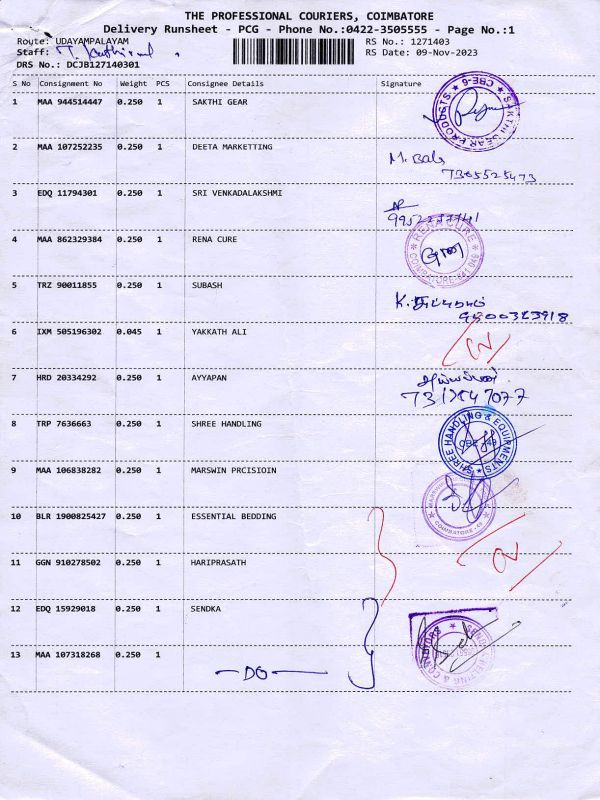 THE PROFESSIONAL COURIERS, COIMBATORE
Delivery Runsheet - PCG - Phone No.:0422-3505555 - Page No.:1
Route: UDAYAMPALAYAM RS No.: 1271403
Staff: RS Date: 09-Nov-2023
DRS No.: DCJB127140301
S No Consignment No Weight PCS Consignee Details Signature
1 MAA 944514447 0.250 1 SAKTHI GEAR
SAKTHI GEAR PRODUCTS CBE-6
2 MAA 107252235 0.250 1 DEETA MARKETTING
M. Bala
7305525473
3 EDQ 11794301 0.250 1 SRI VENKADALAKSHMI
4 MAA 862329384 0.250 1 RENA CURE
RENA CURE COIMBATORE-641 049
5 TRZ 90011855 0.250 1 SUBASH
6 IXM 505196302 0.045 1 YAKKATH ALI
7 HRD 20334292 0.250 1 AYYAPAN
அய்யப்பன்
8 TRP 7636663 0.250 1 SHREE HANDLING
SHREE HANDLING & EQUIPMENTS CBE -49
9 MAA 106838282 0.250 1 MARSWIN PRCISIOIN
COIMBATORE-49
10 BLR 1900825427 0.250 1 ESSENTIAL BEDDING
11 GGN 910278502 0.250 1 HARIPRASATH
12 EDQ 15929018 0.250 1 SENDKA
13 MAA 107318268 0.250 1
— DO —